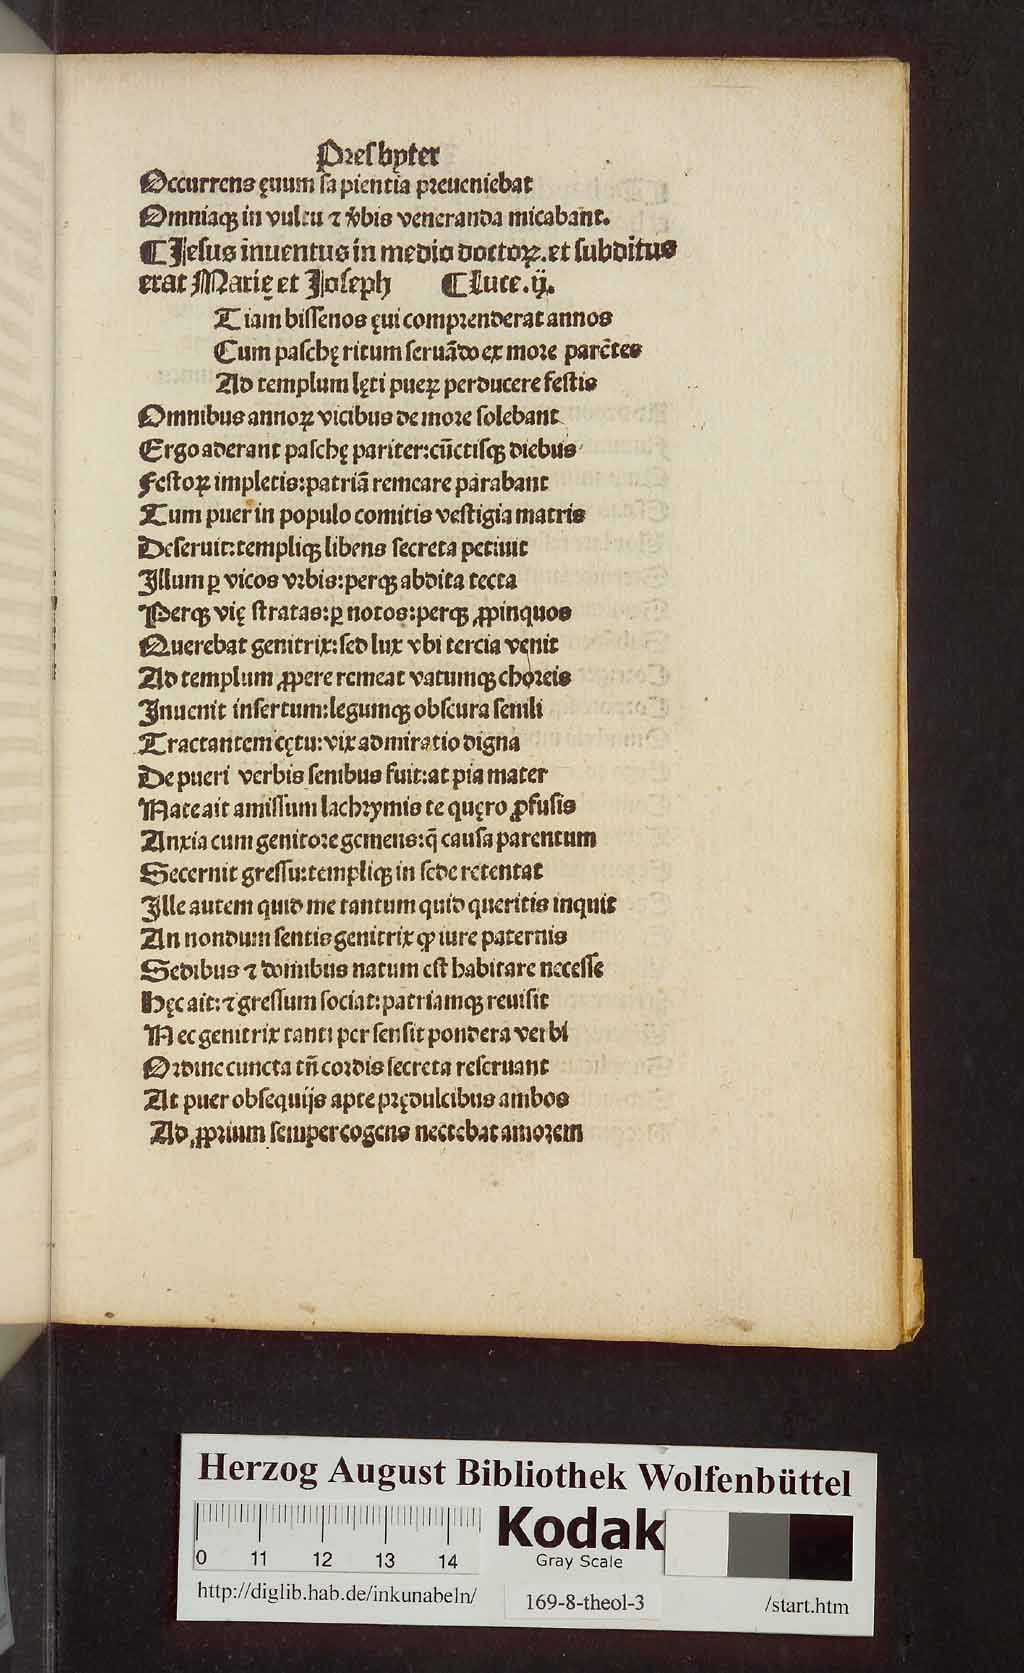 Presbyter
Occurrens ęuum sapientia preueniebat
Omniaqꝫ in vultu ⁊ v̾bis veneranda micabant.
¶ Jesus inuentus in medio doctoꝝ. et subditus
erat Marię et Joseph ¶ Luce.ij.
Tiam bissenos ęui comprenderat annos
Cum paschę ritum seruādo ex more parētes
Ad templum lęti pueꝝ perducere festis
Omnibus annoꝝ vicibus de more solebant
Ergo aderant paschę pariter: cūctisqꝫ diebus
Festoꝝ impletis: patriā remeare parabant
Tum puer in populo comitis vestigia matris
Deseruit: templiqꝫ libens secreta petiuit
Illum ꝑ vicos vrbis: perqꝫ abdita tecta
Perqꝫ vię stratas: ꝑ notos: perqꝫ ꝓpinquos
Querebat genitrix: sed lux vbi tercia venit
Ad templum ꝓpere remeat vatumqꝫ choreis
Inuenit insertum: legumqꝫ obscura senili
Tractantem cętu: vix admiratio digna
De pueri verbis senibus fuit: at pia mater
Nate ait amissum lachrymis te quęro ꝓfusis
Anxia cum genitore gemens: q̄ causa parentum
Secernit gressu: templiqꝫ in sede retentat
Ille autem quid me tantum quid queritis inquit
An nondum sentis genitrix ꝙ iure paternis
Sedibus ⁊ domibus natum est habitare necesse
Hęc ait: ⁊ gressum sociat: patriamqꝫ reuisit
Nec genitrix tanti per sensit pondera verbi
Ordine cuncta tn̄ cordis secreta reseruant
At puer obsequijs apte prędulcibus ambos
Ad ꝓprium semper cogens nectebat amorem
Herzog August Bibliothek Wolfenbüttel
0 11 12 13 14
Kodak
Gray Scale
http://diglib.hab.de/inkunabeln/ 169-8-theol-3 /start.htm